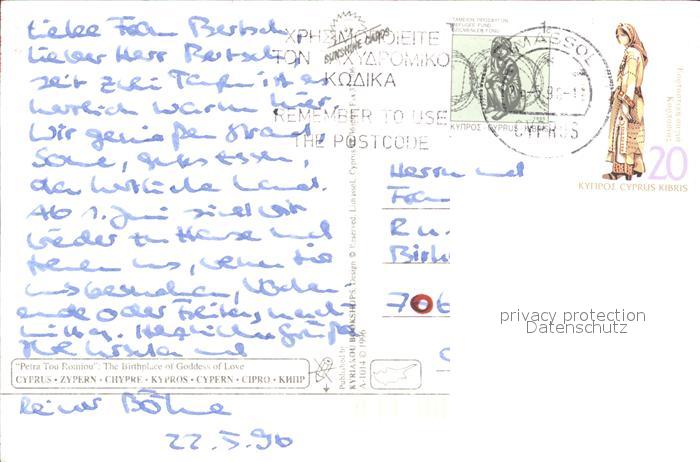 Liebe Frau Bertsch,
lieber Herr Bertsch,
seit zwei Tagen ist es
herrlich warm hier.
Wir genießen Strand,
Sonne, gutes Essen,
das herrliche Land.
Ab 1. Juni sind wir
wieder zu Hause und
freuen uns, wenn Sie
uns besuchen, Wochen-
ende oder Freitag nach-
mittag. Herzliche Grüße
Ihre und
"Petra Tou Romiou": The Birthplace of Goddess of Love
CYPRUS • ZYPERN • CHYPRE • KYPROS • CYPERN • CIPRO • КИПР
Reiner Böhne
22.5.96
SUNSHINE CARDS
ΧΡΗΣΙΜΟΠΟΙΕΙΤΕ
ΤΟΝ ΤΑΧΥΔΡΟΜΙΚΟ
ΚΩΔΙΚΑ
REMEMBER TO USE
THE POSTCODE
ΤΑΜΕΙΟΝ ΠΡΟΣΦΥΓΩΝ
REFUGEE FUND
GÖÇMENLER FONU
ΚΥΠΡΟΣ-CYPRUS KIBRIS
LIMASSOL
CYPRUS
20
ΚΥΠΡΟΣ CYPRUS KIBRIS
Published by
KYRIAKOU BOOKSHOPS
A-1014 © 1996
Herrn und
Frau
706
privacy protection
Datenschutz